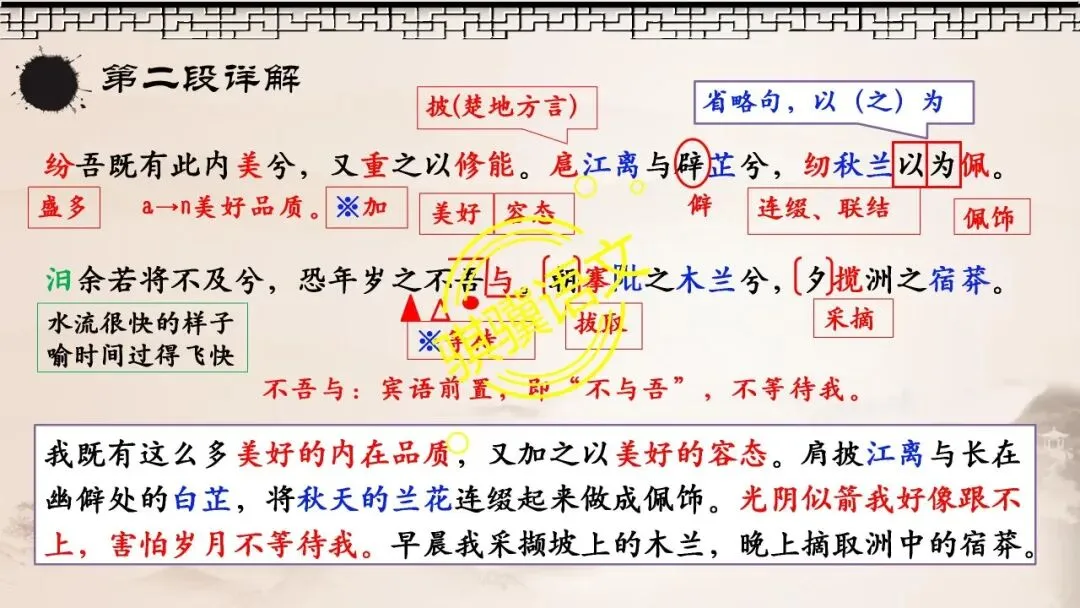 第二段详解
披(楚地方言)
省略句，以（之）为
纷吾既有此内美兮，又重之以修能。扈江离与辟芷兮，纫秋兰以为佩。
盛多 a→n美好品质。 ※加 美好 容态 僻 连缀、联结 佩饰
汩余若将不及兮，恐年岁之不吾与。朝搴阰之木兰兮，夕揽洲之宿莽。
水流很快的样子
喻时间过得飞快
※等待 拔取 采摘
不吾与：宾语前置，即“不与吾”，不等待我。
骐骥语文
我既有这么多美好的内在品质，又加之以美好的容态。肩披江离与长在
幽僻处的白芷，将秋天的兰花连缀起来做成佩饰。光阴似箭我好像跟不
上，害怕岁月不等待我。早晨我采撷坡上的木兰，晚上摘取洲中的宿莽。